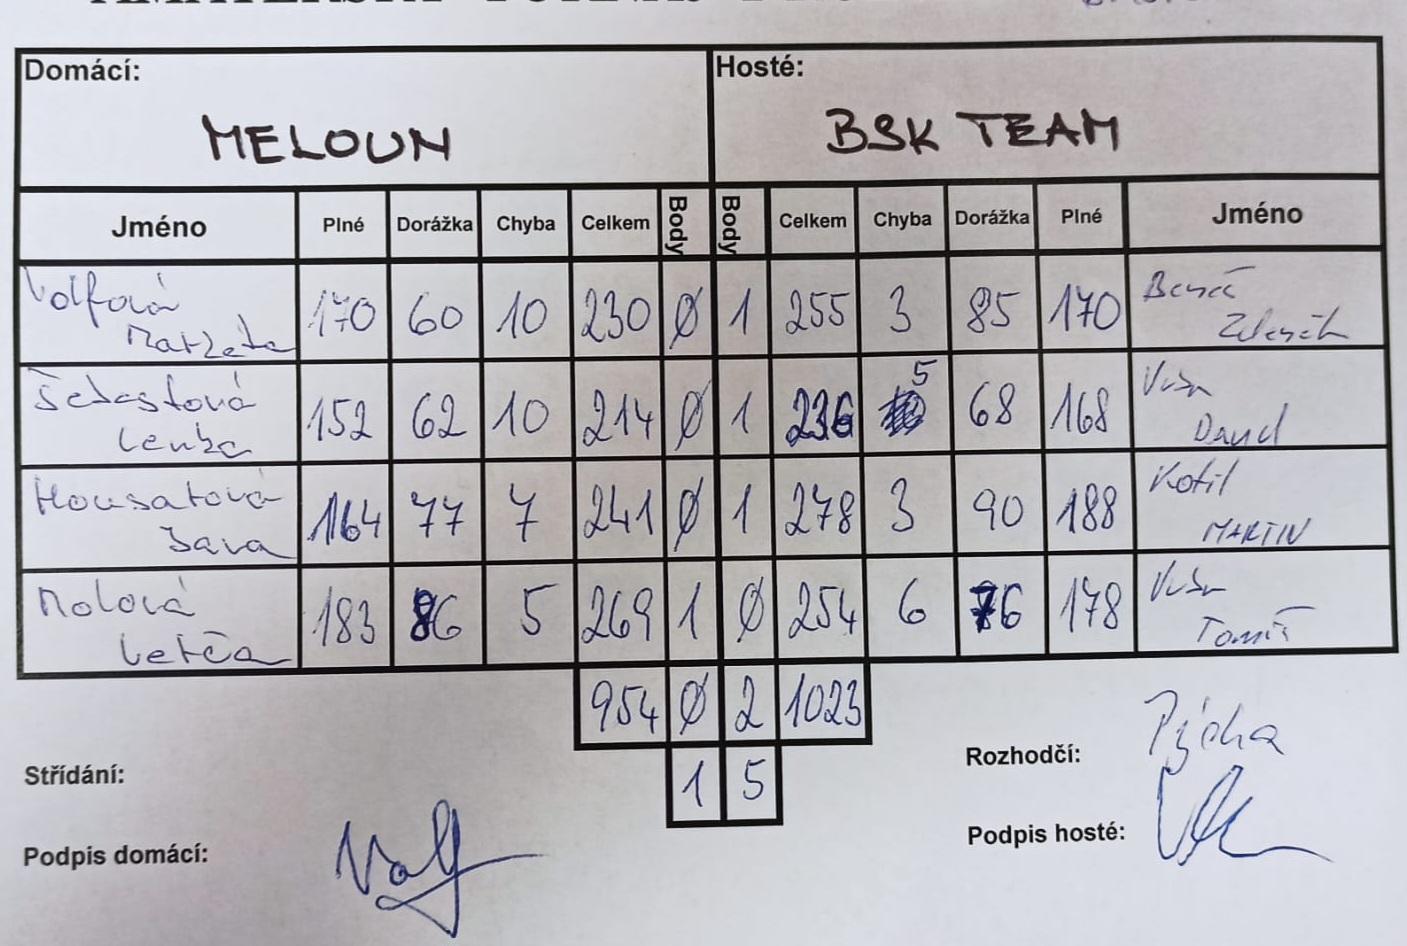 Domácí: Hosté:
MELOUN BSK TEAM
Jméno Plné Dorážka Chyba Celkem Body Body Celkem Chyba Dorážka Plné Jméno
Volfová 170 60 10 230 0 1 255 3 85 170
Markéta
5
152 62 10 214 0 1 236 68 168
Lenka David
164 77 7 241 0 1 278 3 90 188 Kotil
Jana MARTIN
183 86 5 269 1 0 254 6 76 178
Tomáš
954 0 2 1023
1 5
Střídání: Rozhodčí:
Podpis domácí: Podpis hosté: